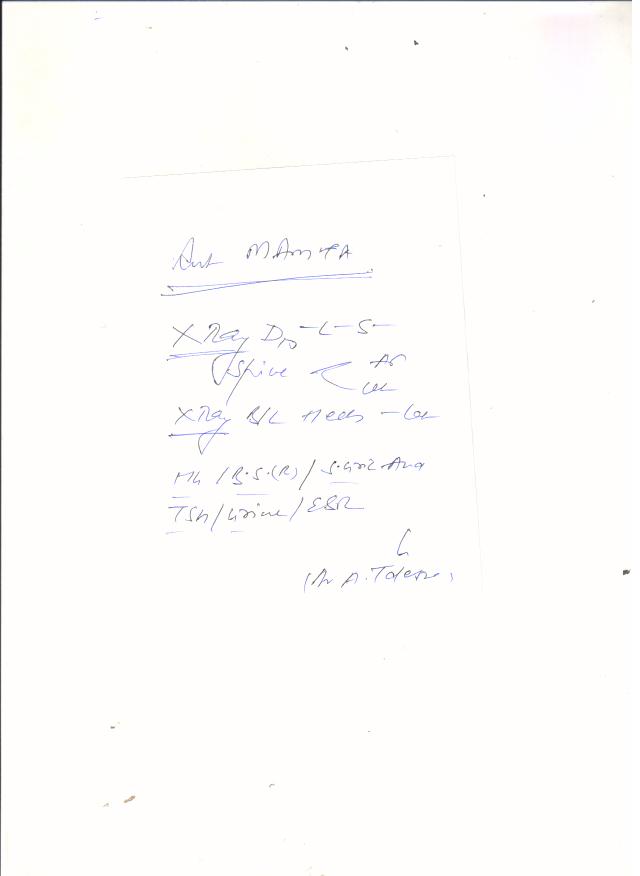 MAMTA
X Ray D10-L-S-
Spine < AP
Lat
X Ray B/L Heels - Lat
Hb / B.S.(R) / S. Uric Acid
TSH / Urine / ESR
(Dr A.